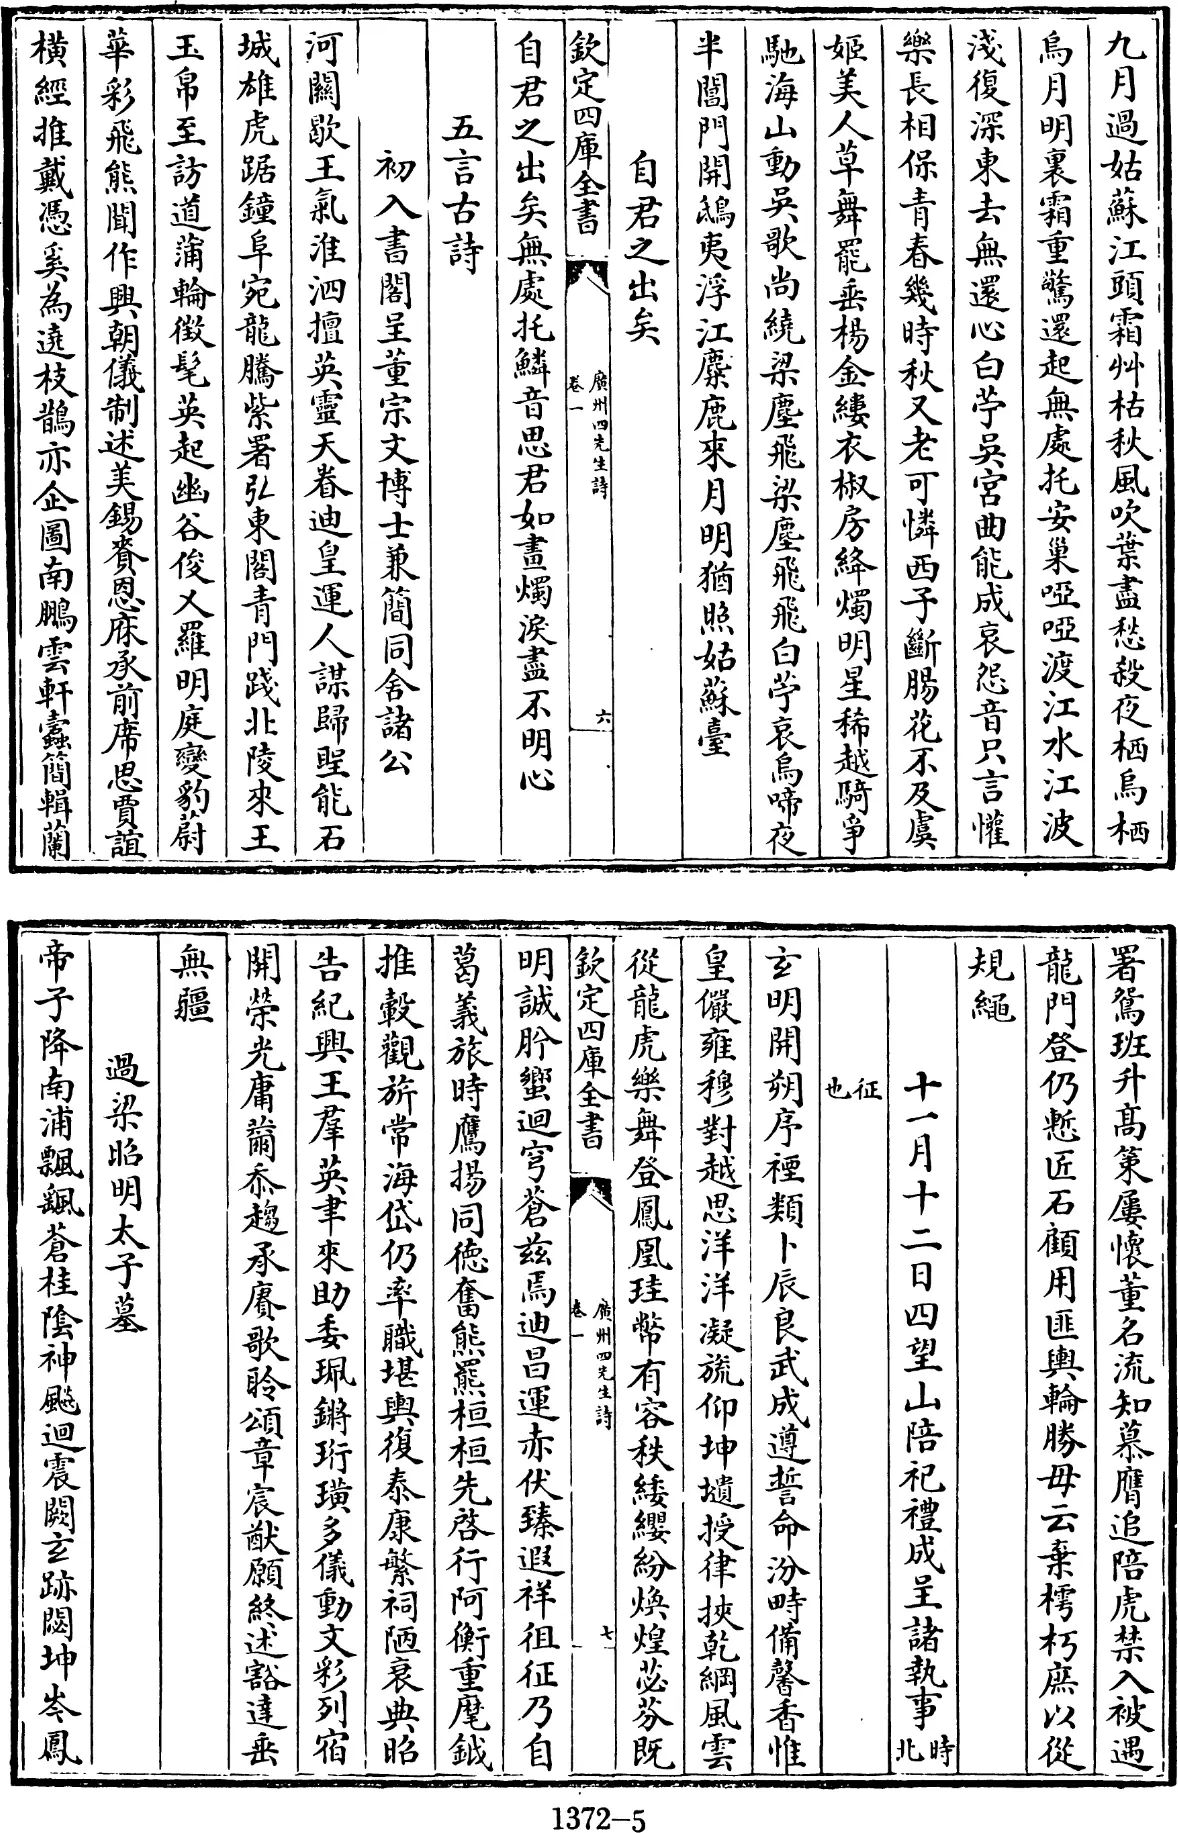 九月過姑蘇江頭霜艸枯秋風吹葉盡愁殺夜栖烏栖
烏月明裏霜重驚還起無處托安巢啞啞渡江水江波
淺復深東去無還心白苧吳宮曲能成哀怨音只言懽
樂長相保青春幾時秋又老可憐西子斷腸花不及虞
姬美人草舞罷垂楊金縷衣椒房絳燭明星稀越騎爭
馳海山動吳歌尚繞梁塵飛梁塵飛飛白苧哀烏啼夜
半閶門開鴟夷浮江麋鹿來月明猶照姑蘇臺
自君之出矣
欽定四庫全書
廣州四先生詩
卷一
六
自君之出矣無處托鱗音思君如畫燭淚盡不明心
五言古詩
初入書閣呈董宗文博士兼簡同舍諸公
河關歇王氣淮泗擅英靈天眷迪皇運人謀歸聖能石
城雄虎踞鐘阜宛龍騰紫署弘東閣青門踐北陵來王
玉帛至訪道蒲輪徵髦英起幽谷俊乂羅明庭變豹蔚
華彩飛熊聞作興朝儀制述美錫賚恩庥承前席思賈誼
橫經推戴憑奚為遶枝鵲亦企圖南鵬雲軒蠹簡輯蘭
署鴛班升髙策屢懷董名流知慕膺追陪虎禁入被遇
龍門登仍慙匠石顧用匪輿輪勝毋云棄樗朽庶以從
規繩
十一月十二日四望山陪祀禮成呈諸執事時北
征也
玄明開朔序禋類卜辰良武成遵誓命汾畤備馨香惟
皇儼雍穆對越思洋洋凝旒仰坤壝授律挾乾綱風雲
從龍虎樂舞登鳳凰珪幣有容秩緌纓紛煥煌苾芬既
欽定四庫全書
廣州四先生詩
卷一
七
明誠肸蠁迴穹蒼兹焉迪昌運赤伏臻遐祥徂征乃自
葛義旅時鷹揚同德奮熊羆桓桓先啓行阿衡重麾鉞
推轂觀旂常海岱仍率職堪輿復泰康繁祠陋衰典昭
告紀興王羣英聿來助委珮鏘珩璜多儀動文彩列宿
開榮光庸菌忝趨承賡歌聆頌章宸猷願終述豁達垂
無疆
過梁昭明太子墓
帝子降南浦飄颻蒼桂陰神飈迴震闕玄跡閟坤岑鳳
1372-5